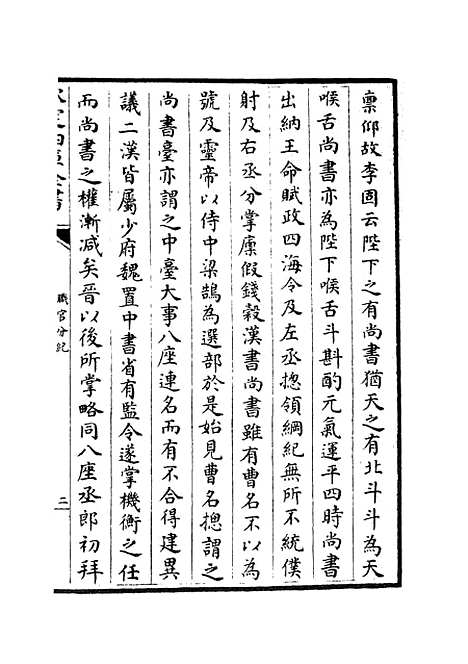 稟仰故李固云陛下之有尚書猶天之有北斗斗為天
喉舌尚書亦為陛下喉舌斗斟酌元氣運平四時尚書
出納王命賦政四海令及左丞揔領綱紀無所不統僕
射及右丞分掌廩假錢榖漢書尚書雖有曹名不以為
號及靈帝以侍中梁鵠為選部於是始見曹名揔謂之
尚書臺亦謂之中臺大事八座連名而有不合得建異
議二漢皆屬少府魏置中書省有監令遂掌機衡之任
而尚書之權漸減矣晉以後所掌略同八座丞郎初拜
欽定四庫全書
職官分紀
三